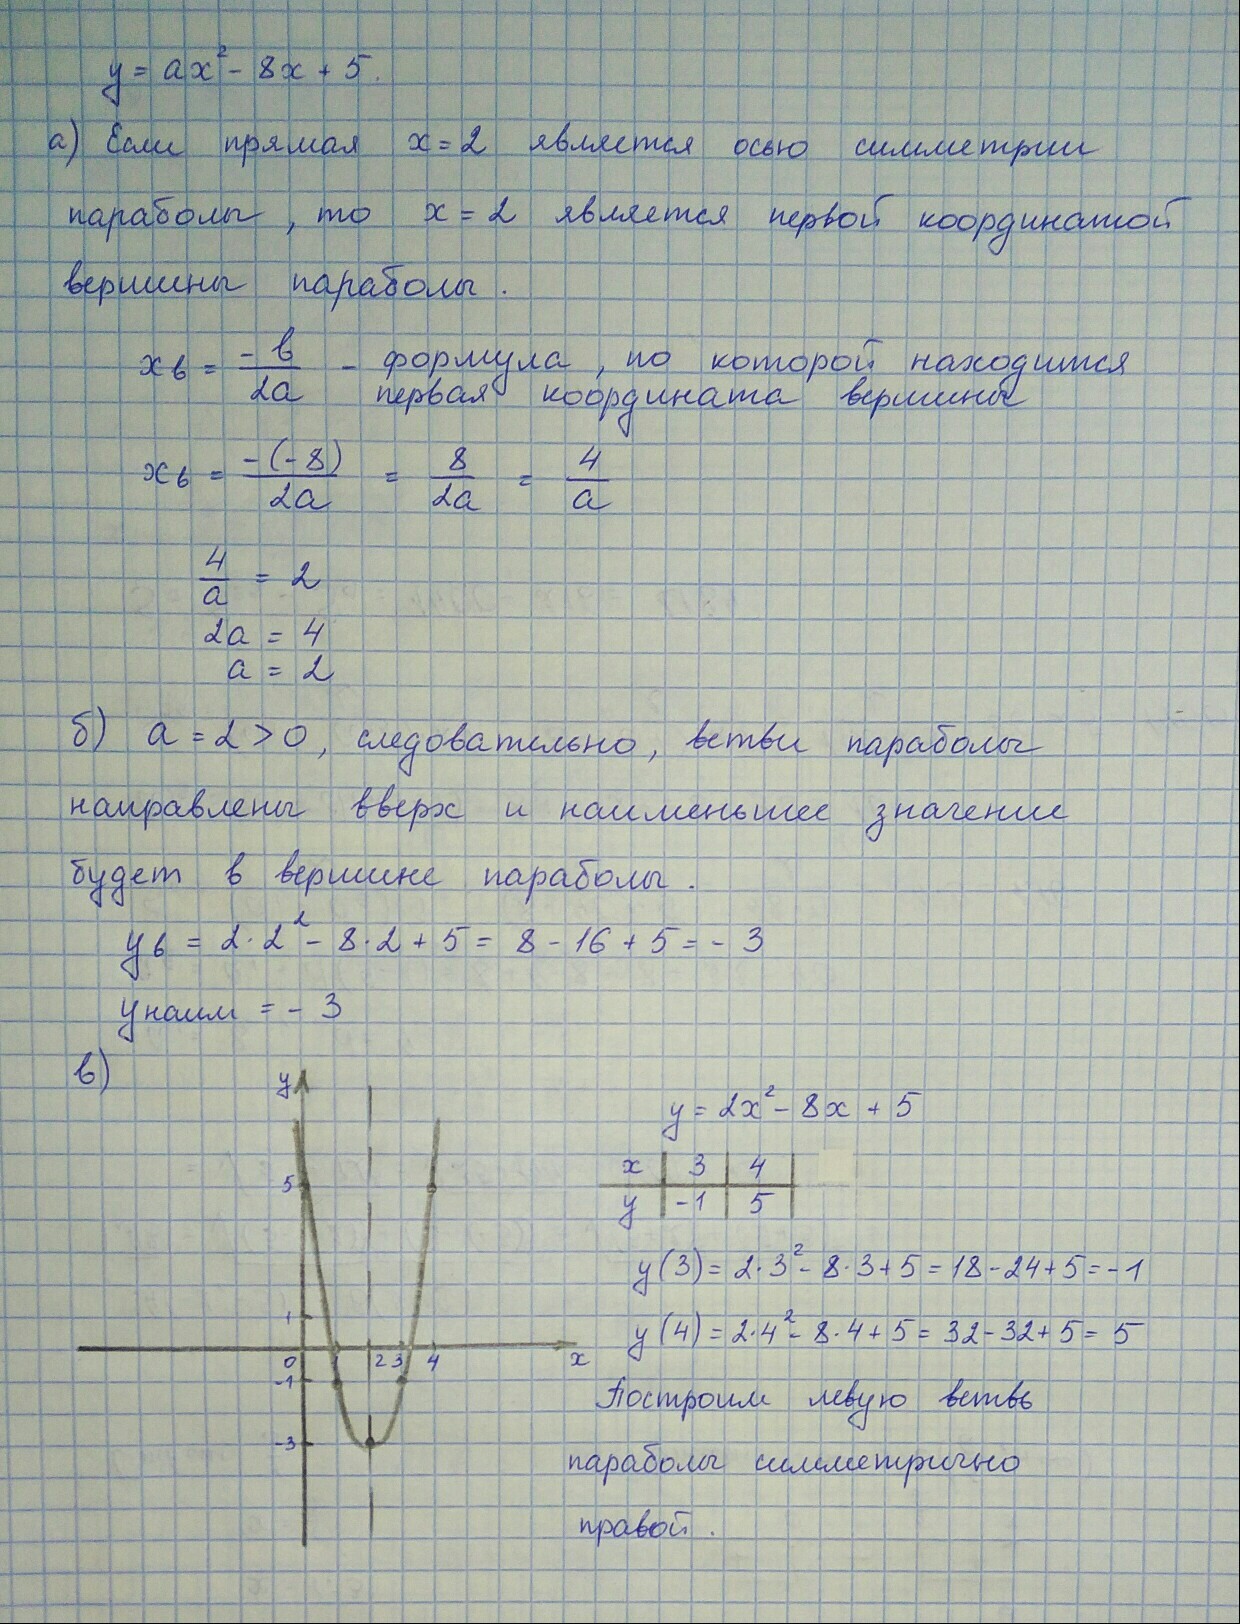 y = ax² - 8x + 5.
а) Если прямая x = 2 является осью симметрии
параболы, то x = 2 является первой координатой
вершины параболы.
xв = -b/2a - формула, по которой находится
первая координата вершины
xв = -(-8)/2a = 8/2a = 4/a
4/a = 2
2a = 4
a = 2
б) a = 2 > 0, следовательно, ветви параболы
направлены вверх и наименьшее значение
будет в вершине параболы.
yв = 2·2² - 8·2 + 5 = 8 - 16 + 5 = - 3
yнаим = - 3
в)
y
5
1
0 2 3 4 x
-1
-3
y = 2x² - 8x + 5
x 3 4
y -1 5
y(3) = 2·3² - 8·3 + 5 = 18 - 24 + 5 = -1
y(4) = 2·4² - 8·4 + 5 = 32 - 32 + 5 = 5
Построим левую ветвь
параболы симметрично
правой.